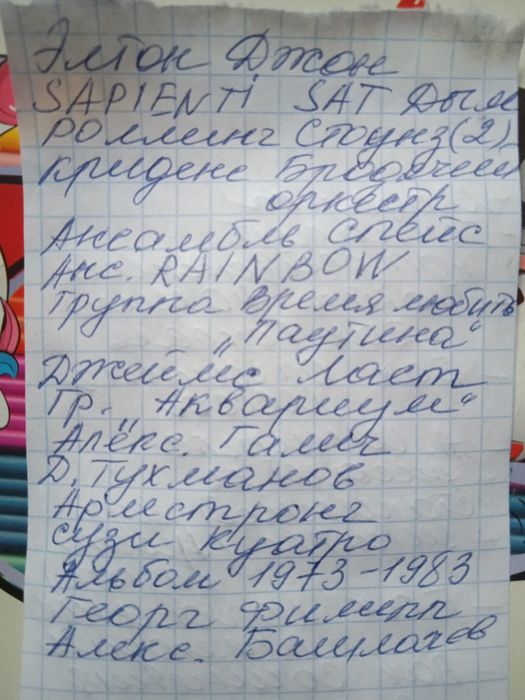 Элтон Джон
SAPIENTI SAT Дым
Роллинг Стоунз (2)
Криденс Бродячий
оркестр
Ансамбль Спейс
Анс. RAINBOW
Группа Время любить
"Паутина"
Джеймс Ласт
Гр. Аквариум"
Алекс. Галич
Д. Тухманов
Армстронг
Сузи Куатро
Альбом 1973-1983
Георг Филипп
Алекс. Башлачев